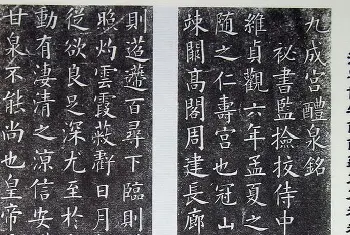 九成宮醴泉銘
祕書監撿挍侍中
維貞觀六年孟夏之
随之仁壽宮也冠山
竦闕高閣周建長廊
則迢遰百尋下臨則
照灼雲霞蔽虧日月
從欲良足深尤至於
動有淒清之凉信安
甘泉不能尚也皇帝